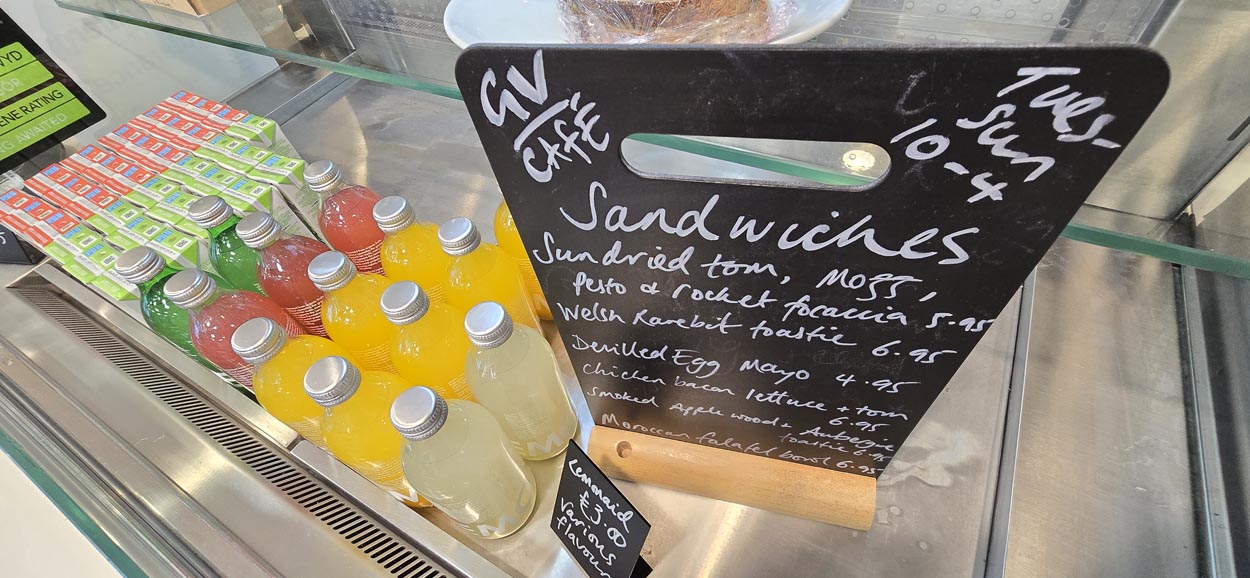 GV
CAFÉ
Tues-
Sun
10-4
Sandwiches
Sundried tom, Mozz,
Pesto & rocket focaccia 5.95
Welsh Rarebit toastie 6.95
Devilled Egg Mayo 4.95
chicken bacon lettuce + tom
6.95
smoked Applewood + Aubergine
toastie 6.95
Moroccan falafel bowl 6.95
Lemonaid
£3.00
various
flavours
ENE RATING
NG AWAITED